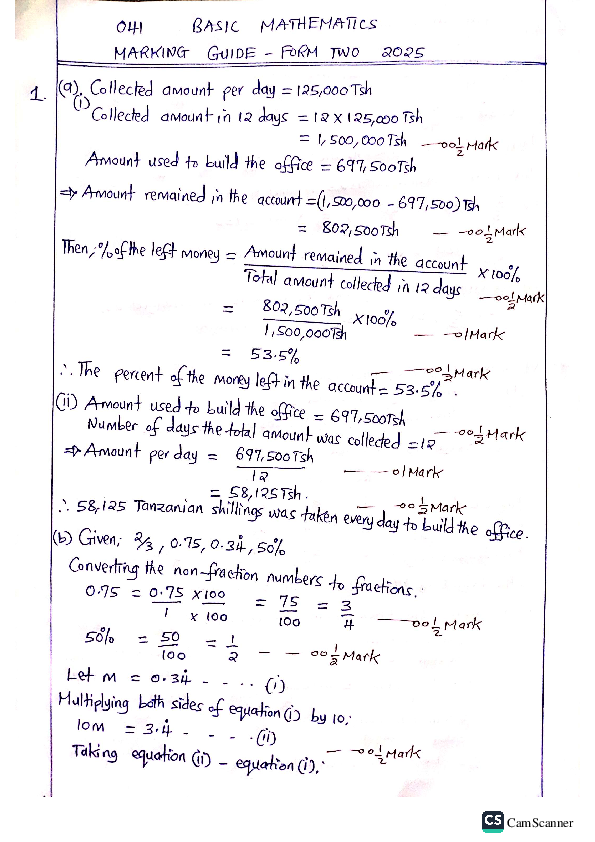 041 BASIC MATHEMATICS
MARKING GUIDE - FORM TWO 2025
1. (a). Collected amount per day = 125,000 Tsh
(i) Collected amount in 12 days = 12 x 125,000 Tsh
= 1,500,000 Tsh — 00½ Mark
Amount used to build the office = 697,500 Tsh
⇒ Amount remained in the account = (1,500,000 - 697,500) Tsh
= 802,500 Tsh — 00½ Mark
Then, % of the left money = Amount remained in the account / Total amount collected in 12 days × 100% — 00½ Mark
= 802,500 Tsh / 1,500,000 Tsh × 100% — 01 Mark
= 53.5%
∴ The percent of the money left in the account = 53.5%. — 00½ Mark
(ii) Amount used to build the office = 697,500 Tsh
Number of days the total amount was collected = 12 — 00½ Mark
⇒ Amount per day = 697,500 Tsh / 12 — 01 Mark
= 58,125 Tsh.
∴ 58,125 Tanzanian shillings was taken every day to build the office. — 00½ Mark
(b) Given; 2/3, 0.75, 0.34̇, 50%
Converting the non-fraction numbers to fractions.
0.75 = 0.75/1 × 100/× 100 = 75/100 = 3/4 — 00½ Mark
50% = 50/100 = 1/2 — — 00½ Mark
Let m = 0.34̇ - - - - (i)
Multiplying both sides of equation (i) by 10;
10m = 3.4̇ - - - - (ii)
Taking equation (ii) - equation (i), — 00½ Mark
CS CamScanner